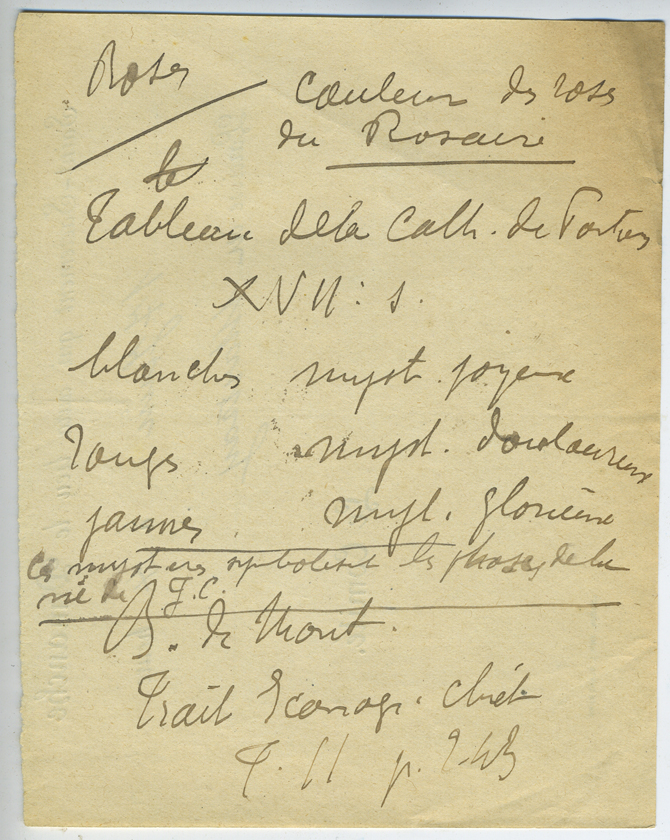 Roses
Couleur des roses
du Rosaire
le
Tableau de la Cath. de
XVII: s.
blanches myst. joyeux
rouges myst. douloureux
jaunes myst. glorieux
Ces mystères symbolisent les phases de la
vie de J.C.
B. de Mont.
Trait Iconog. chrét
T. II p. 243